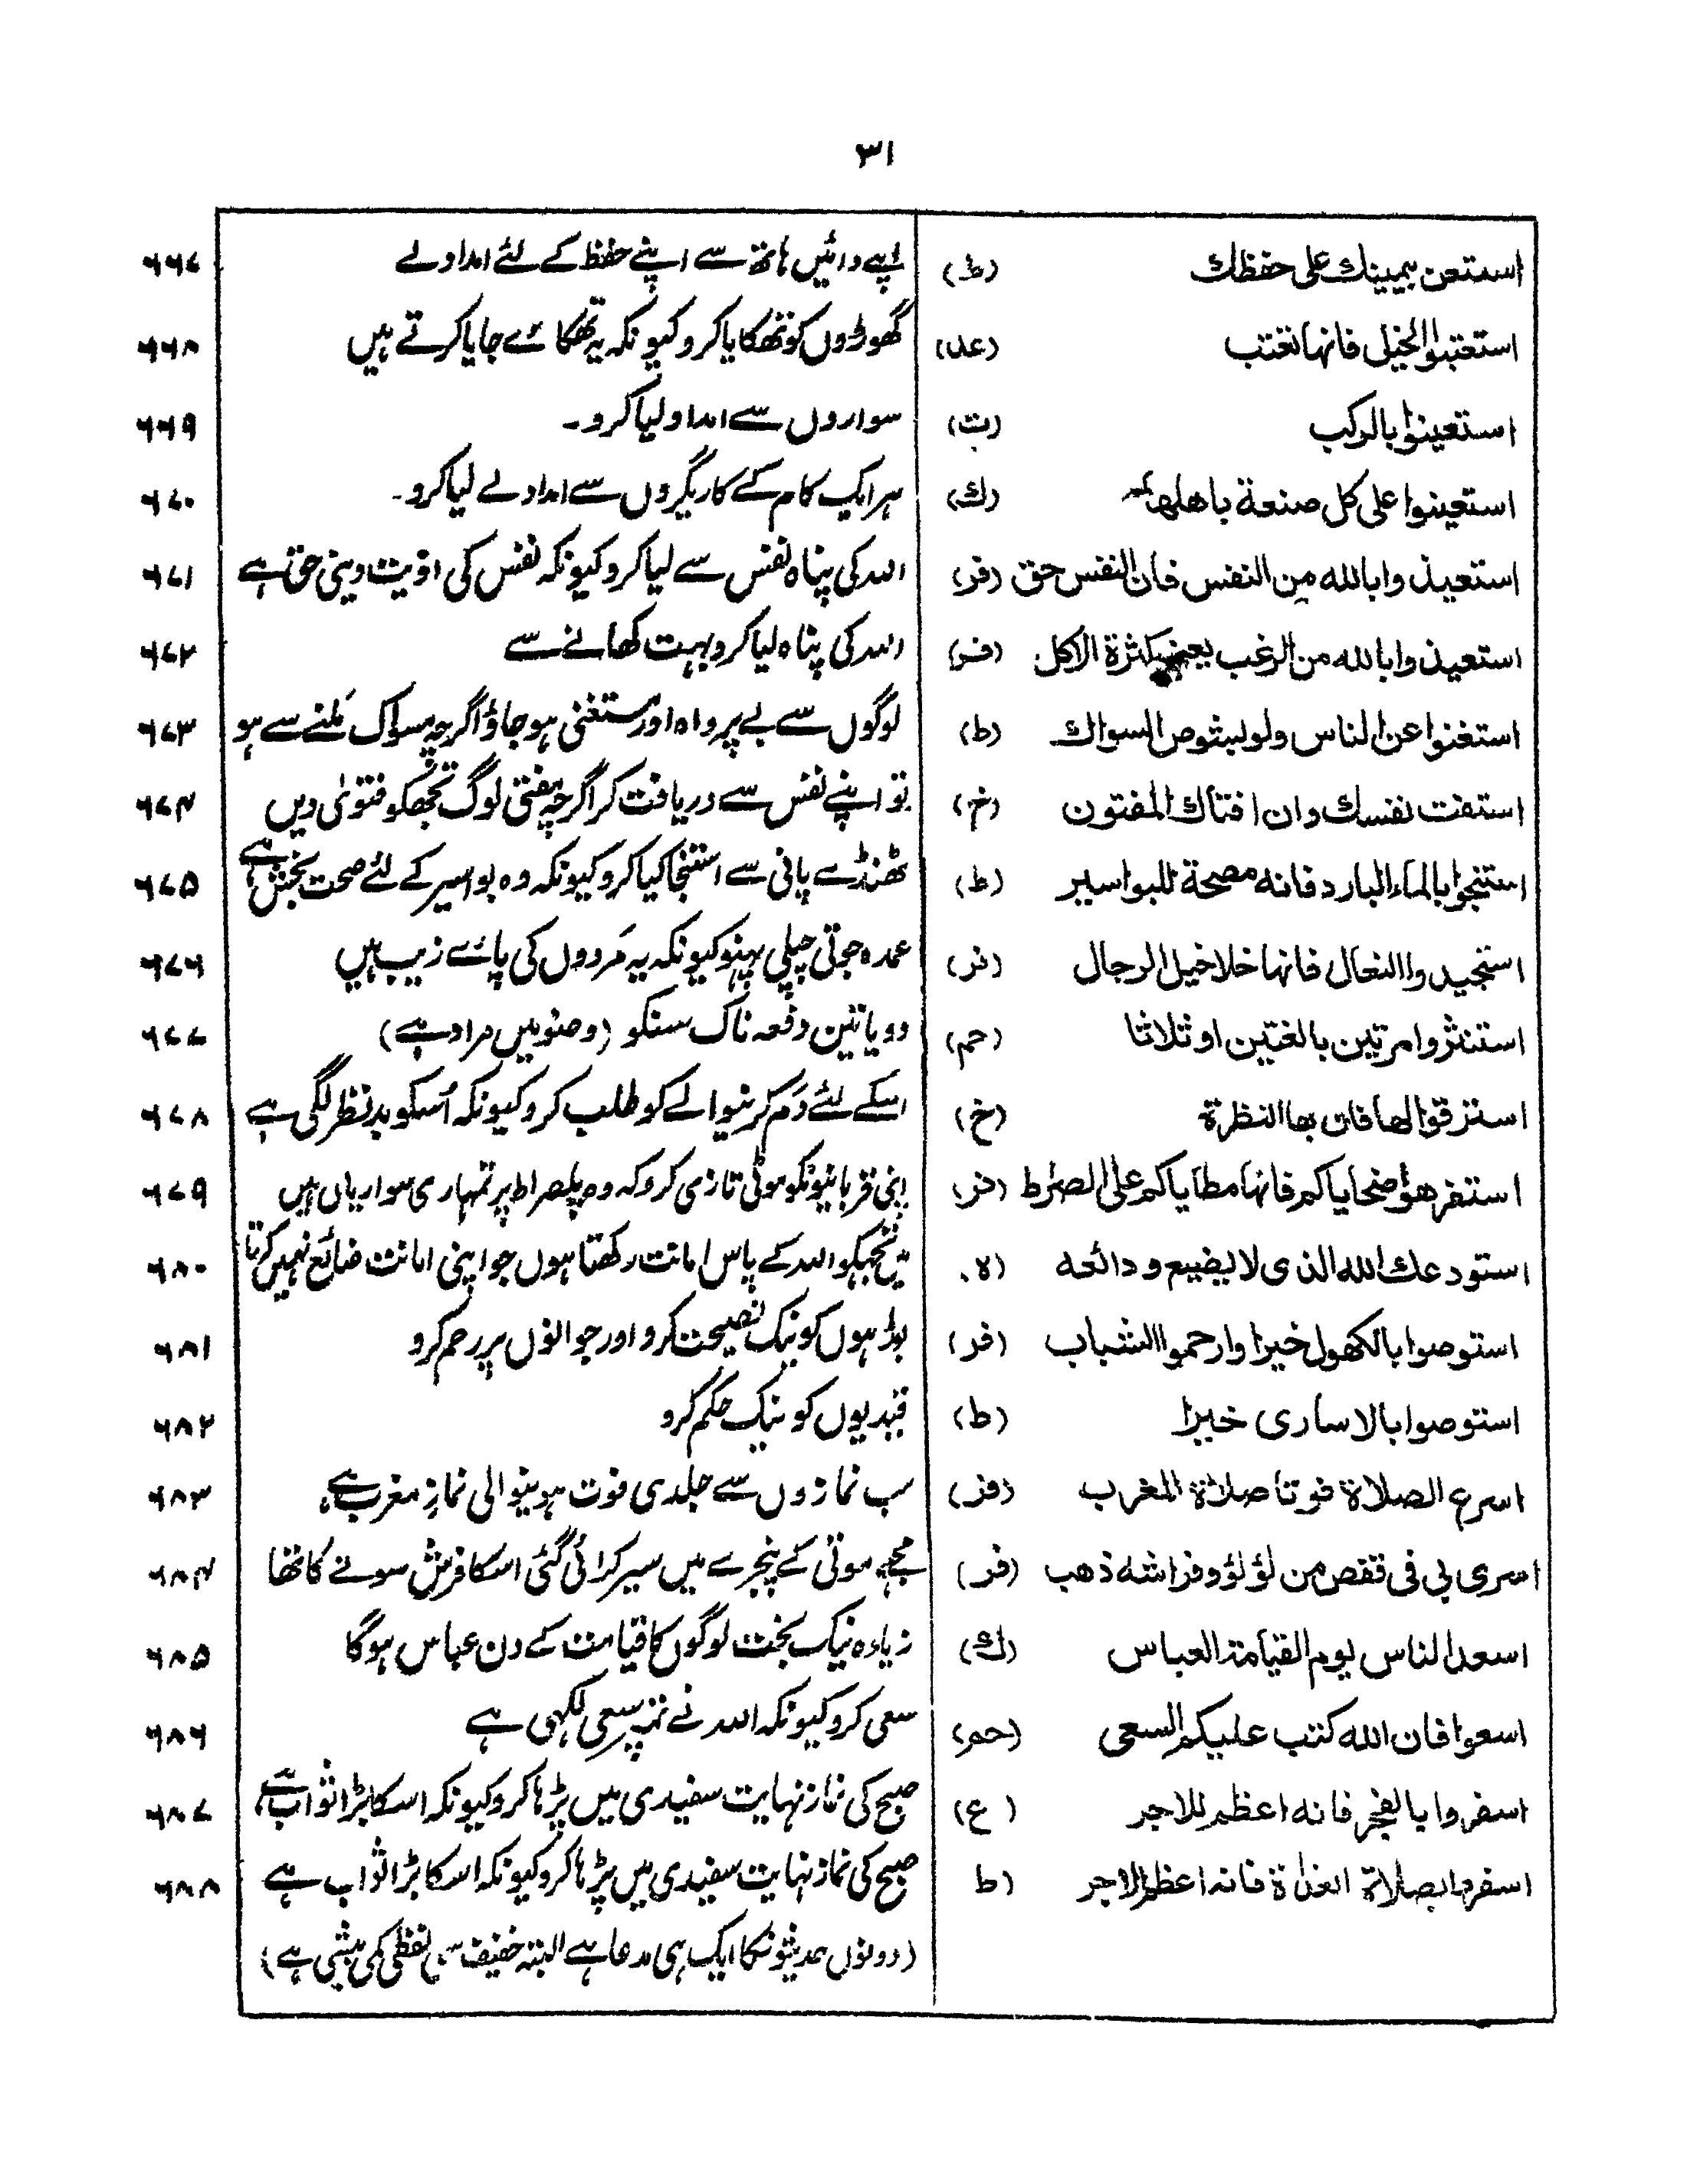 ۳۱
استعن بيمينك على حفظك (ط) اپنے دائیں ہاتھ سے اپنے حفظ کے لئے امداد لے ۶۶۷
استعتبوا الخيل فانها تعتب (عد) گھوڑوں کو تھکایا کرو کیونکہ یہ تھکائے جایا کرتے ہیں ۶۶۸
استعينوا بالركب (ت) سواروں سے امداد لیا کرو۔ ۶۶۹
استعينوا على كل صنعة باهلها (ك) ہر ایک کام کے کاریگروں سے امداد لے لیا کرو۔ ۶۷۰
استعيذوا بالله من النفس فان النفس حق (فر) اللہ کی پناہ نفس سے لیا کرو کیونکہ نفس کی اذیت دینی حق ہے ۶۷۱
استعيذوا بالله من الرغب يعني كثرة الاكل (فر) اللہ کی پناہ لیا کرو بہت کھانے سے ۶۷۲
استغنوا عن الناس ولو بشوص السواك (ط) لوگوں سے بے پرواہ اور مستغنی ہو جاؤ اگرچہ مسواک ملنے سے ہو ۶۷۳
استفت نفسك وان افتاك المفتون (خ) تو اپنے نفس سے دریافت کر اگرچہ مفتی لوگ تجھکو فتویٰ دیں ۶۷۴
استنجوا بالماء البارد فانه مصحة للبواسير (ط) ٹھنڈے پانی سے استنجا کیا کرو کیونکہ وہ بواسیر کے لئے صحت بخش ہے ۶۷۵
استجيدوا النعال فانها خلاخيل الرجال (فر) عمدہ جوتی چپلی پہنو کیونکہ یہ مَردوں کی پائے زیب ہیں ۶۷۶
استنثروا مرتين بالغتين او ثلاثا (حم) دو یا تین دفعہ ناک سنکو (وضو میں مراد ہے) ۶۷۷
استرقوا لها فان بها النظرة (خ) اسکے لئے دَم کرنیوالے کو طلب کرو کیونکہ اُسکو بد نظر لگی ہے ۶۷۸
استفرهوا ضحاياكم فانها مطاياكم على الصراط (فر) اپنی قربانیونکو موٹی تازی کرو کہ وہ پلصراط پر تمہاری سواریاں ہیں ۶۷۹
استودعك الله الذى لا يضيع ودائعه (ه) میں تجہکو اللہ کے پاس امانت رکھتا ہوں جو اپنی امانت ضائع نہیں کرتا ۶۸۰
استوصوا بالكهول خيرا وارحموا الشباب (فر) بوڑہوں کو نیک نصیحت کرو اور جوانوں پر رحم کرو ۶۸۱
استوصوا بالاسارى خيرا (ط) قیدیوں کو نیک حکم کرو ۶۸۲
اسرع الصلاة فوتا صلاة المغرب (فر) سب نمازوں سے جلدی فوت ہونیوالی نمازِ مغرب ہے ۶۸۳
اسرى بى فى قفص من لؤلؤ وفراشه ذهب (فر) مجہے موتی کے پنجرے میں سیر کرائی گئی اسکا فرش سونے کا تھا ۶۸۴
اسعد الناس يوم القيامة العباس (ك) زیادہ نیک بخت لوگوں کا قیامت کے دن عباس ہوگا ۶۸۵
اسعوا فان الله كتب عليكم السعى (حم) سعی کرو کیونکہ اللہ نے تمپر سعی لکہی ہے ۶۸۶
اسفروا بالفجر فانه اعظم للاجر (ع) صبح کی نماز نہایت سفیدی میں پڑہا کرو کیونکہ اسکا بڑا ثواب ہے ۶۸۷
اسفروا بصلاة الغداة فانه اعظم للاجر (ط) صبح کی نماز نہایت سفیدی میں پڑہا کرو کیونکہ اسکا بڑا ثواب ہے ۶۸۸
(دونوں حدیثونکا ایک ہی مدعا ہے البتہ خفیف سی لفظی کمی بیشی ہے)